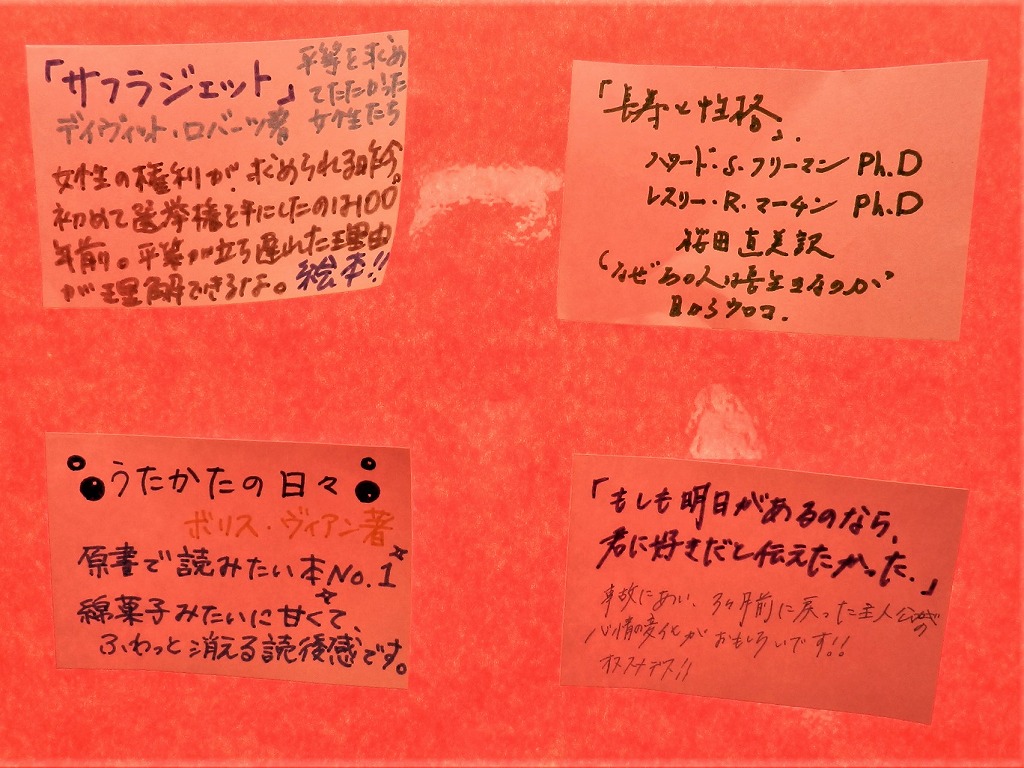 「サフラジェット」
平等を求め
てたたかった
女性たち
デイヴィット・ロバーツ著
女性の権利が、求められる昨今。
初めて選挙権を手にしたのは100
年前。平等が立ち遅れた理由
が理解できるよ。絵本!!
「長寿と性格」.
ハワード・S.フリーマン Ph.D
レスリー・R.マーチン Ph.D
桜田直美訳
"なぜあの人は長生きなのか"
目からウロコ.
うたかたの日々
ボリス・ヴィアン著
原書で読みたい本No.1
綿菓子みたいに甘くて、
ふわっと消える読後感です。
「もしも明日があるのなら、
君に好きだと伝えたかった.」
事故にあい、3ヶ月前に戻った主人公の
心情の変化がおもしろいです!!
オススメデス!!